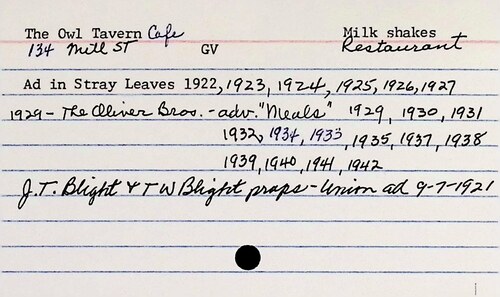 The Owl Tavern Cafe Milk shakes
134 Mill ST GV Restaurant
Ad in Stray Leaves 1922, 1923, 1924, 1925, 1926, 1927
1929 - The Oliver Bros. - adv. "Meals" 1929, 1930, 1931
1932, 1934, 1933, 1935, 1937, 1938
1939, 1940, 1941, 1942
J.T. Blight & T W Blight props - Union ad 9-7-1921